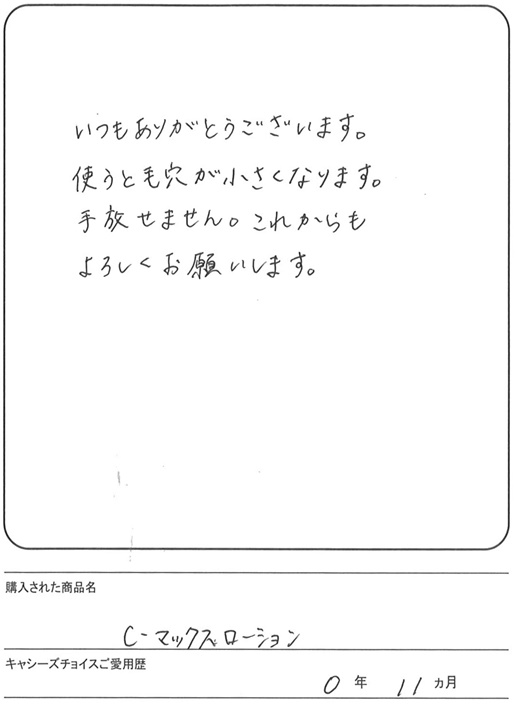 いつもありがとうございます。
使うと毛穴が小さくなります。
手放せません。これからも
よろしくお願いします。
購入された商品名
C-マックスローション
キャシーズチョイスご愛用歴
0年 11ヵ月